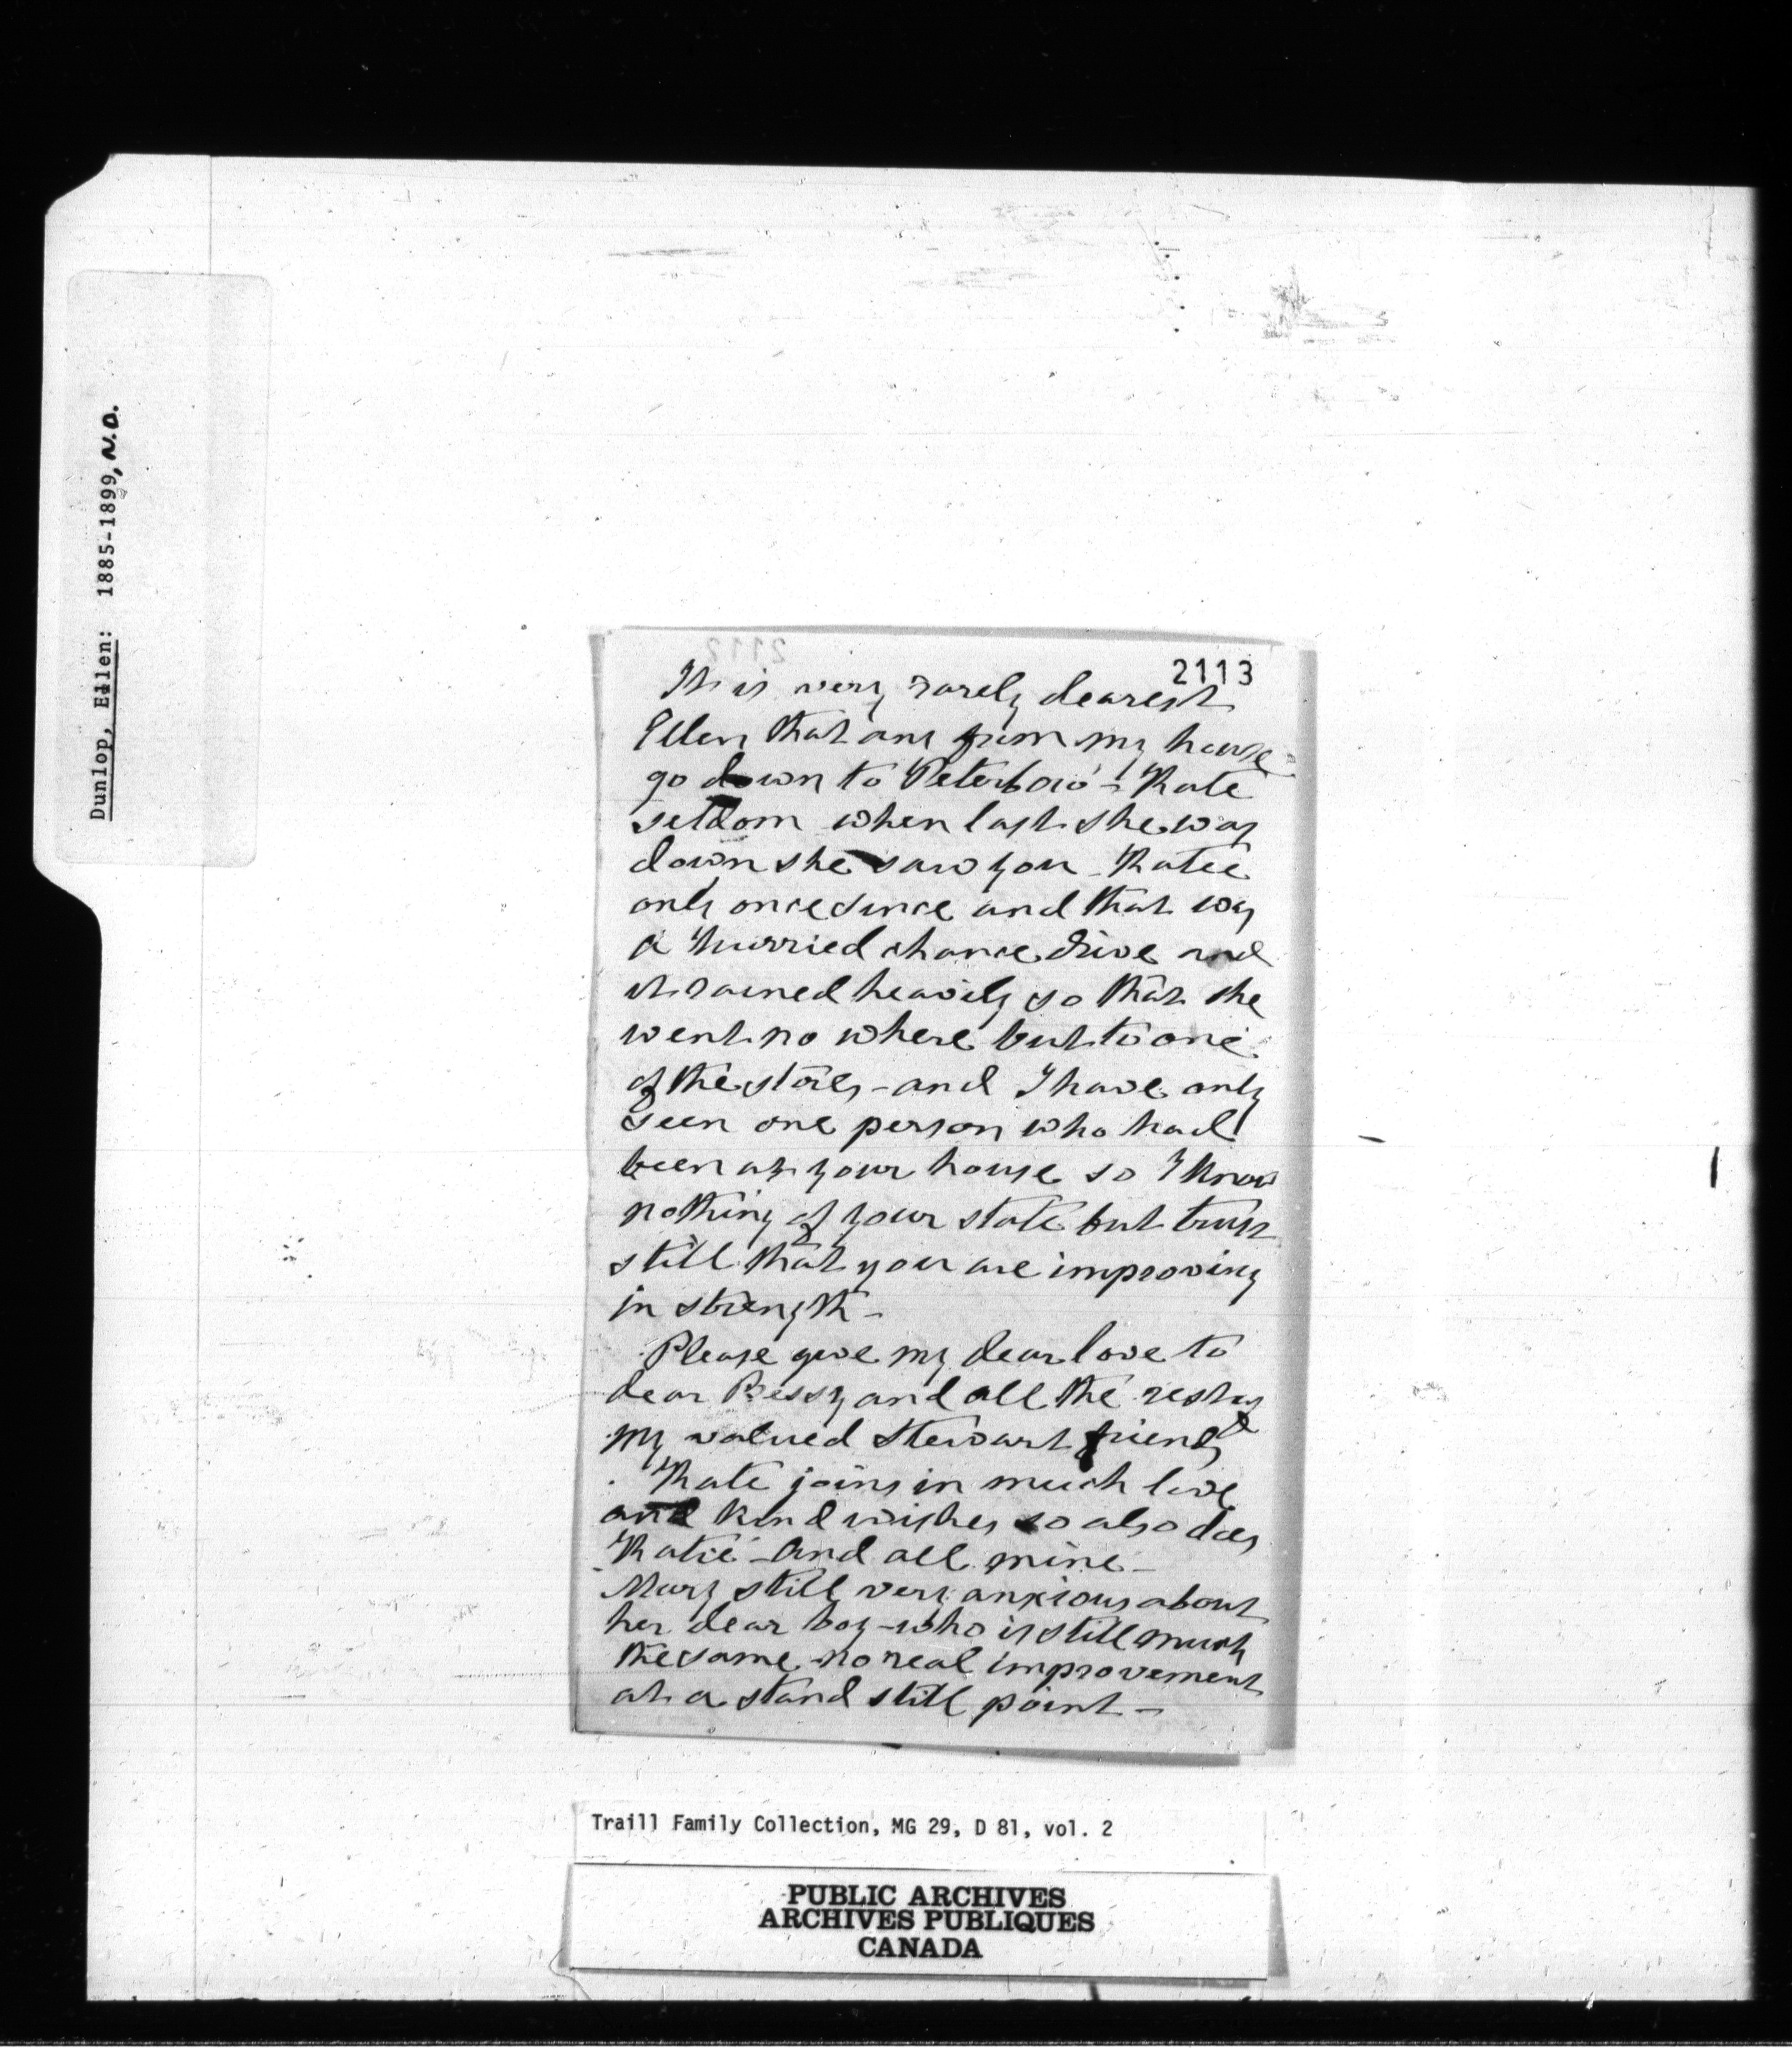 Dunlop, Ellen: 1885-1899, N.D.
2113
It is very rarely dearest
Ellen that any from my house
go down to Peterboro' - Kate
seldom when last she was
down she saw you - Katie
only once since and that was
a hurried chance drive and
it rained heavily so that she
went no where but to one
of the stores - and I have only
seen one person who had
been at your house so I know
nothing of your state but trust
still that you are improving
in strength -
Please give my dear love to
dear Bessy and all the rest of
my valued Stewart friends
Kate joins in much love
and kind wishes so also does
Katie - And all mine -
Mary still very anxious about
her dear boy - who is still much
the same - no real improvement
at a stand still point -
Traill Family Collection, MG 29, D 81, vol. 2
PUBLIC ARCHIVES
ARCHIVES PUBLIQUES
CANADA